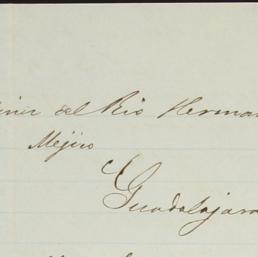 del Rio Herman
Mejico
Guadalajara